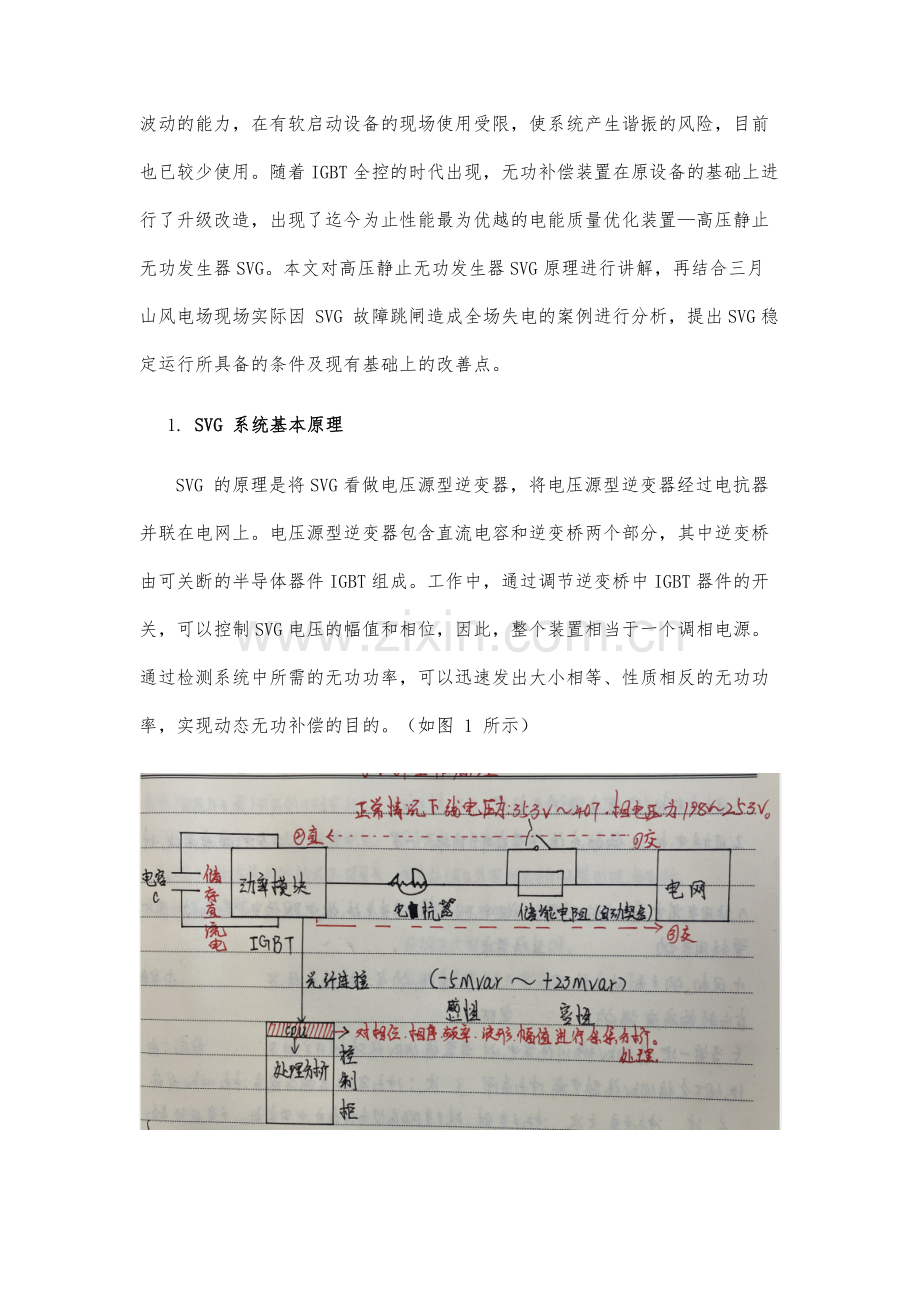 波动的能力，在有软启动设备的现场使用受限，使系统产生谐振的风险，目前
也已较少使用。随着IGBT全控的时代出现，无功补偿装置在原设备的基础上进
行了升级改造，出现了迄今为止性能最为优越的电能质量优化装置—高压静止
无功发生器SVG。本文对高压静止无功发生器SVG原理进行讲解，再结合三月
山风电场现场实际因 SVG 故障跳闸造成全场失电的案例进行分析，提出SVG稳
定运行所具备的条件及现有基础上的改善点。
1. SVG 系统基本原理
SVG 的原理是将SVG看做电压源型逆变器，将电压源型逆变器经过电抗器
并联在电网上。电压源型逆变器包含直流电容和逆变桥两个部分，其中逆变桥
由可关断的半导体器件IGBT组成。工作中，通过调节逆变桥中IGBT器件的开
关，可以控制SVG电压的幅值和相位，因此，整个装置相当于一个调相电源。
通过检测系统中所需的无功功率，可以迅速发出大小相等、性质相反的无功功
率，实现动态无功补偿的目的。（如图 1 所示）
www.zixin.com.cn
正常情况下线电压为:353V～407.相电压为198V～253V。
②直
①交
电容
C
储存直流电
功率模块
电抗器
储能电阻(自动契合)
电网
③交
IGBT
光纤连接
(-5Mvar ～ +23Mvar)
感性 容性
CPU
对相位.相序.频率.波形.幅值进行采集分析。
处理.
处理分析
控制柜